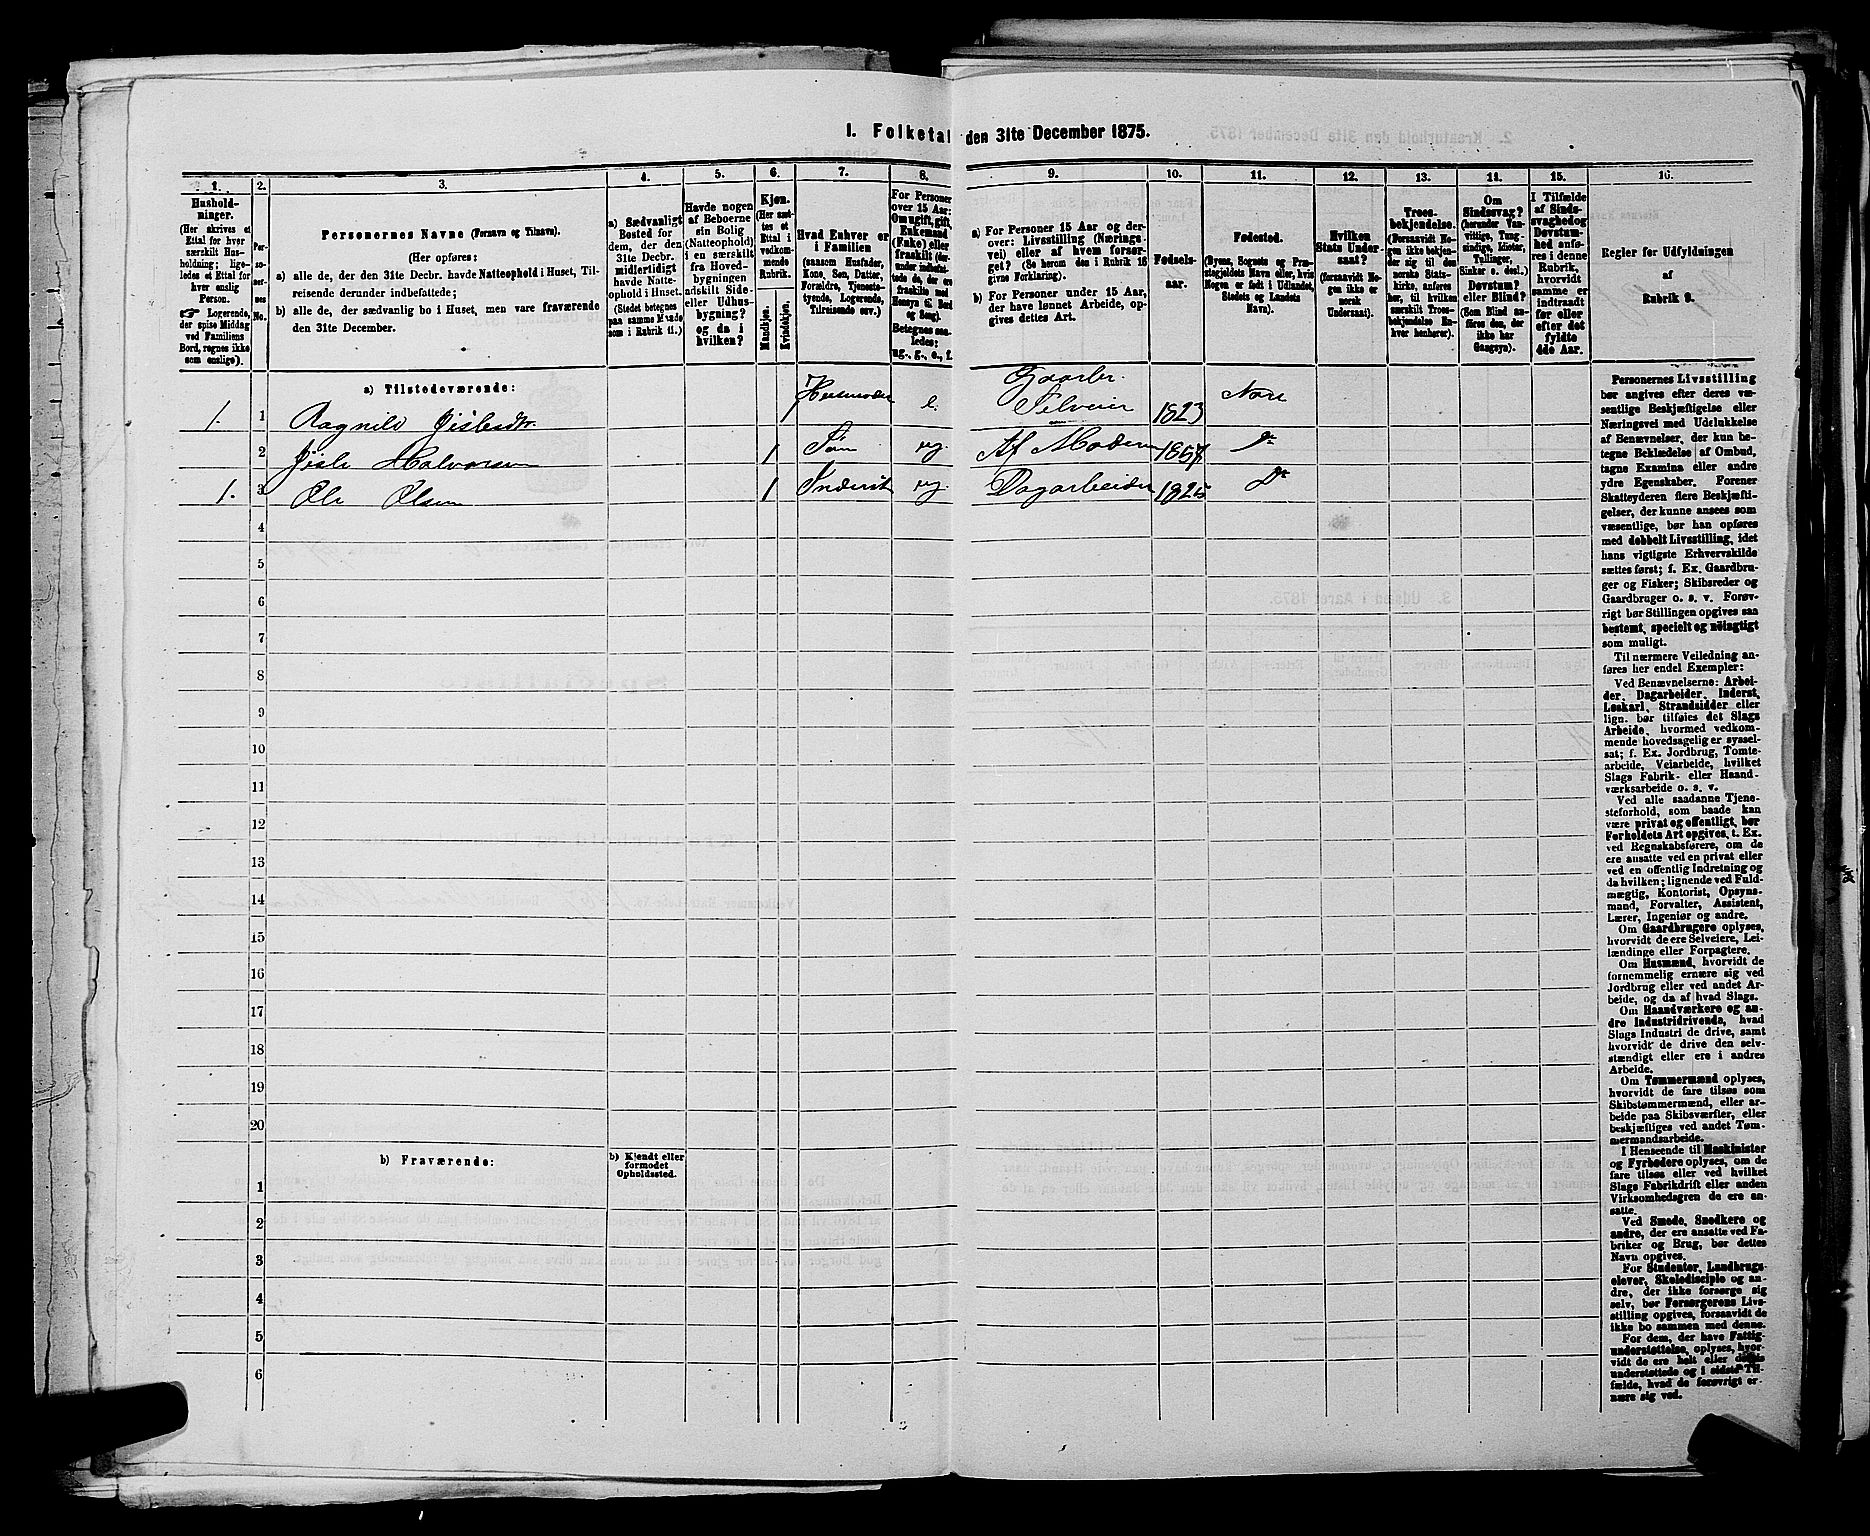 I. Folketal den 31te December 1875.
1. 2. 3. 4. 5. 6. 7. 8. 9. 10. 11. 12. 13. 14. 15. 16.
Hushold-
ninger.
(Her skrives et
Ettal for hver
særskilt Hus-
holdning; lige-
ledes et Ettal for
hver enslig
Person.
☞ Logerende,
der spise Middag
ved Familiens
Bord, regnes ikke
som enslige).
Per-
so-
ner-
nes
No.
Personernes Navne (Fornavn og Tilnavn).
(Her opføres:
a) alle de, der den 31te Decbr. havde Natteophold i Huset, Til-
reisende derunder indbefattede;
b) alle de, der sædvanlig bo i Huset, men vare fraværende
den 31te December.
a) Sædvanligt
Bosted for
dem, der den
31te Decbr.
midlertidigt
havde Natte-
ophold i Huset.
(Stedet betegnes
paa samme Maade
som i Rubrik 11.)
Havde nogen
af Beboerne
sin Bolig
(Natteophold)
i en særskilt
fra Hoved-
bygningen
adskilt Side-
eller Udhus-
bygning?
og da i
hvilken?
Kjøn.
(Her sæt-
tes et
Ettal i
vedkom-
mende
Rubrik.
Mandkjøn.
Kvindekjøn.
Hvad Enhver er
i Familien
(saasom Husfader,
Kone, Søn, Datter,
Forældre, Tjeneste-
tyende, Logerende,
Tilreisende osv.)
For Personer
over 15 Aar:
Om ugift, gift,
Enkemand
(Enke) eller
fraskilt (der-
under indbefat-
tede de, der ere
fraskilte med
Hensyn til Bord
og Seng).
Betegnes saa-
ledes:
ug., g., e., f.
a) For Personer 15 Aar og der-
over: Livsstilling (Nærings-
vei) eller af hvem forsør-
get? (Se herom den i Rubrik 16
givne Forklaring).
b) For Personer under 15 Aar,
der have lønnet Arbeide, op-
gives dettes Art.
Fødsels-
aar.
Fødested.
(Byens, Sognets og Præ-
stegjeldets Navn eller, hvis
Nogen er født i Udlandet,
Stedets og Landets
Navn).
Hvilken
Stats Under-
saat?
(forsaavidt No-
gen ikke er
norsk
Undersaat).
Troes-
bekjendelse.
(Forsaavidt No-
gen ikke bekjen-
der sig til den
norske Stats-
kirke, anføres
her, til hvilken
Troesbe-
kjendelse En-
hver henhører).
Om
Sindssvag?
(herunder Van-
vittige, Tung-
sindige, Idioter,
Tullinger,
Sinker o. desl.)
Døvstum?
eller Blind?
(Som Blind an-
føres den, der
ikke har
Gangsyn).
I Tilfælde
af Sinds-
svaghed og
Døvstum-
hed anfø-
res i denne
Rubrik,
hvorvidt
samme er
indtraadt
før eller
efter det
fyldte
4de Aar.
Regler for Udfyldningen
af
Rubrik 9.
a) Tilstedeværende:
1. 1 Ragnild Gislesdtr. 1 Husmoder e. Gaardbr. Selveier 1823 Nore
2 Gisle Halvorsen 1 Søn ug. Af Moderen 1857 Do
1. 3 Ole Olsen 1 Inderst ug. Dagarbeider 1825 Do
4
5
6
7
8
9
10
11
12
13
14
15
16
17
18
19
20
b) Fraværende:
b) Kjendt eller
formodet
Opholdssted.
1
2
3
4
5
6
Personernes Livsstilling
bør angives efter deres væ-
sentlige Beskjæftigelse eller
Næringsvei med Udelukkelse
af Benævnelser, der kun be-
tegne Beklædelse af Ombud,
tagne Examina eller andre
ydre Egenskaber. Forener
Skatteyderen flere Beskjæfti-
gelser, der kunne ansees som
væsentlige, bør han opføres
med dobbelt Livsstilling, idet
hans vigtigste Erhvervskilde
sættes først; f. Ex. Gaardbru-
ger og Fisker; Skibsreder og
Gaardbruger o. s. v. Forøv-
rigt bør Stillingen opgives saa
bestemt, specielt og nøiagtigt
som muligt.
Til nærmere Veiledning an-
føres her endel Exempler:
Ved Benævnelserne: Arbei-
der, Dagarbeider, Inderst,
Løskarl, Strandsidder eller
lign. bør tilføies det Slags
Arbeide, hvormed vedkom-
mende hovedsagelig er syssel-
sat; f. Ex. Jordbrug, Tomte-
arbeide, Veiarbeide, hvilket
Slags Fabrik- eller Haand-
værksarbeide o. s. v.
Ved alle saadanne Tjene-
steforhold, som baade kan
være privat og offentligt, bør
Forholdets Art opgives, t. Ex.
ved Regnskabsførere, om de
ere ansatte ved en privat eller
ved en offentlig Indretning og
da hvilken; lignende ved Fuld-
mægtig, Kontorist, Opsyns-
mand, Forvalter, Assistent,
Lærer, Ingeniør og andre.
Om Gaardbrugere oplyses,
hvorvidt de ere Selveiere, Lei-
lændinge eller Forpagtere.
Om Husmænd, hvorvidt de
fornemmelig ernære sig ved
Jordbrug eller ved andet Ar-
beide, og da af hvad Slags.
Om Haandværkere og an-
dre Industridrivende, hvad
Slags Industri de drive, samt
hvorvidt de drive den selv-
stændigt eller ere i andres
Arbeide.
Om Tømmermænd oplyses,
hvorvidt de fare tilsøs som
Skibstømmermænd, eller ar-
beide paa Skibsværfter, eller
beskjæftiges ved andet Tøm-
mermandsarbeide.
I Henseende til Maskinister
og Fyrbødere oplyses, om de
fare tilsøs eller ved hvilket
Slags Fabrikdrift eller anden
Virksomhedsgren de ere an-
satte.
Ved Smede, Snedkere og
andre, der ere ansatte ved Fa-
briker og Brug, bør dettes
Navn opgives.
For Studenter, Landbrugs-
elever, Skoledisciple og an-
dre, der ikke forsørge sig
selv, bør Forsørgerens Livs-
stilling opgives, forsaavidt de
ikke bo sammen med denne.
For dem, der have Fattig-
understøttelse, oplyses, hvor-
vidt de ere helt eller delvis
understøttede og i sidste Til-
fælde, hvad de forøvrigt er-
nære sig ved.